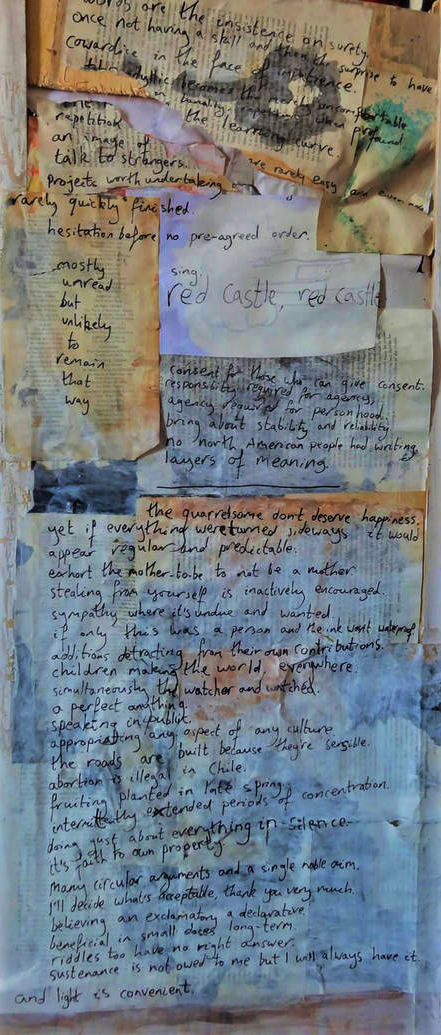 words are the insistence on surety.
once not having a skill and then the surprise to have
cowardice in the face of impatience.
idyllic becomes the merely uncomfortable
on banality when prof ound
repetition the learning curve.
an image of
talk to strangers.
projects worth undertaking are rarely easy and even more
rarely quickly finished.
hesitation before no pre-agreed order.
mostly
unread
but
unlikely
to
remain
that
way
sing:
red castle, red castle
consent for those who can give consent.
responsibility required for agency,
agency required for personhood.
bring about stability and reliability
no north American people had writing
layers of meaning.
the quarrelsome don't deserve happiness.
yet if everything were turned sideways it would
appear regular and predictable.
exhort the mother-to-be to not be a mother
stealing from yourself is inactively encouraged.
sympathy where it's undue and wanted.
if only this was a person and the ink want waterproof
additions detracting from their own contributions.
children making the world, everywhere.
simultaneously the watcher and watched.
a perfect anything.
speaking in public.
appropriating any aspect of any culture
the roads are built because they're sensible.
abortion is illegal in Chile.
fruiting planted in late spring
intermittently extended periods of concentration.
doing just about everything in silence.
it's faith to own property
many circular arguments and a single noble aim.
I'll decide what's acceptable, thank you very much.
believing an exclamatory a declarative
beneficial in small doses long-term.
riddles too have no right answer.
sustenance is not owed to me but I will always have it.
and light is convenient.